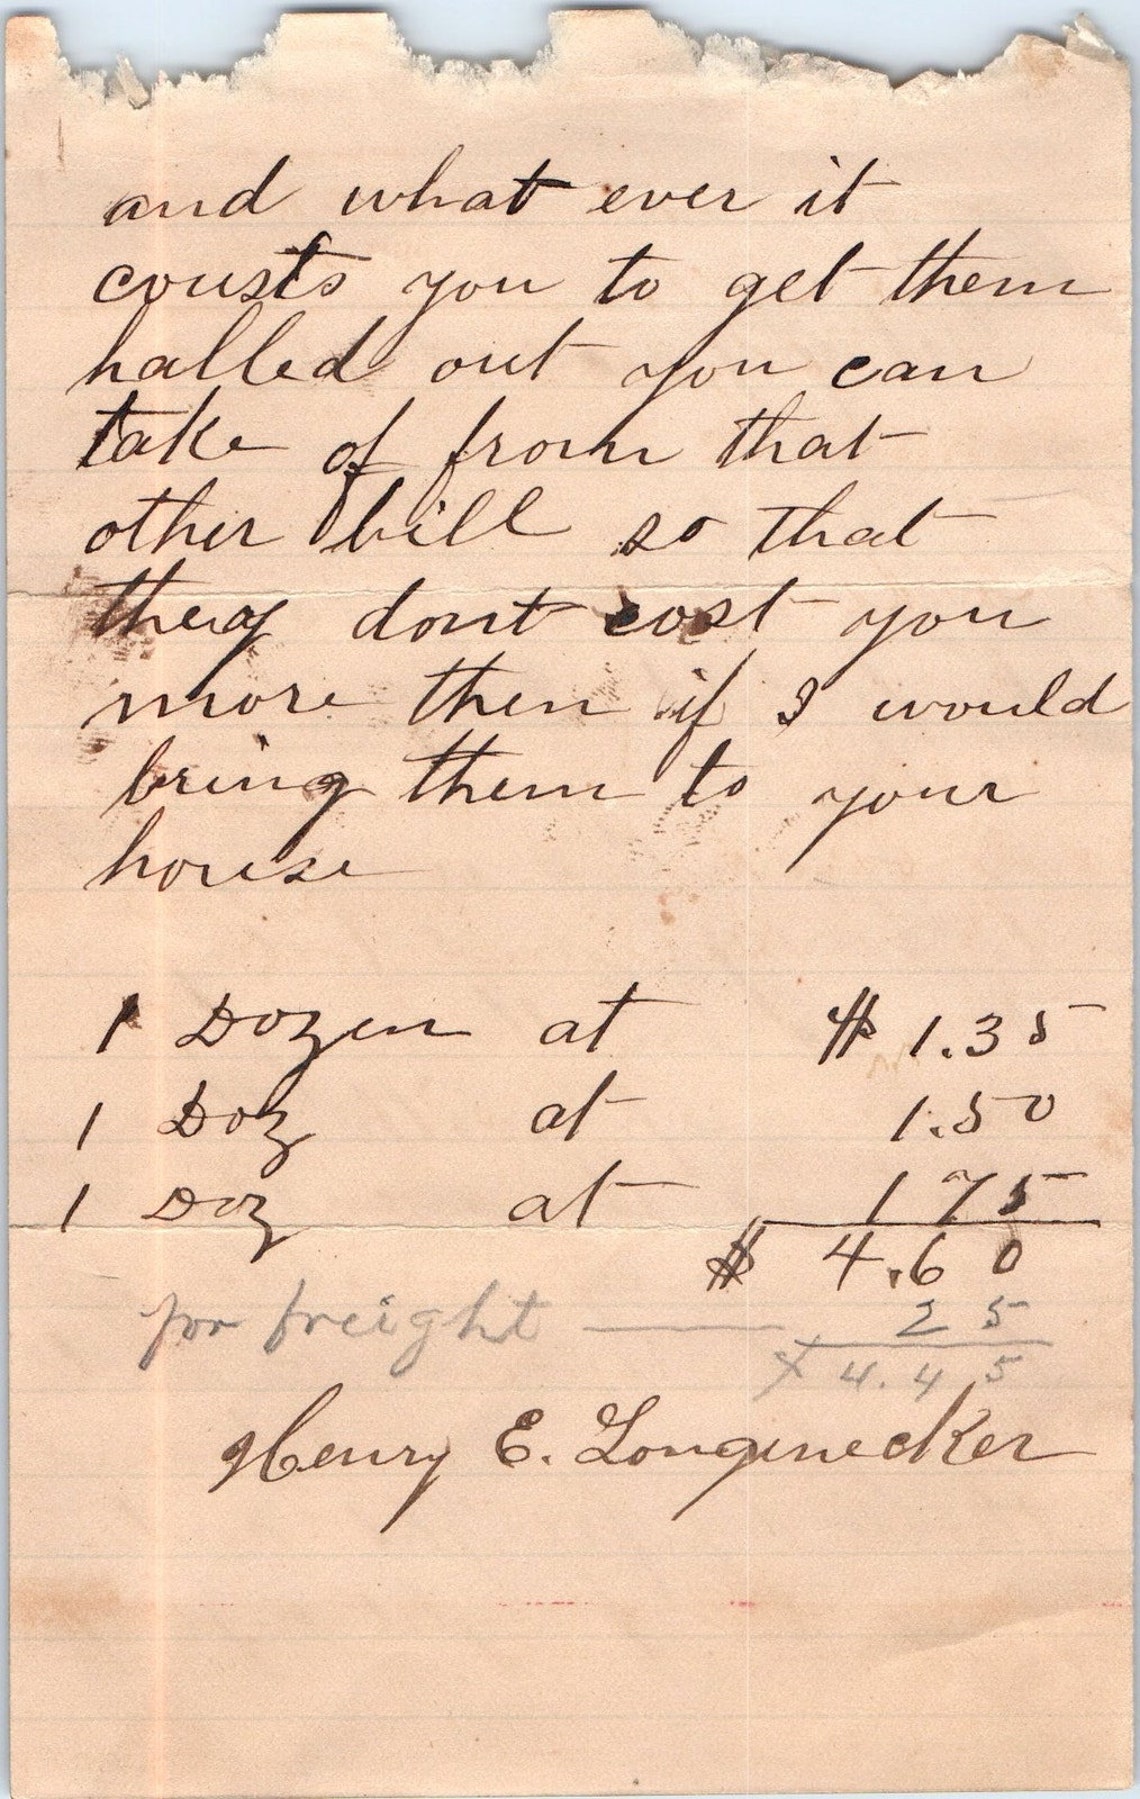 and what ever it
cousts you to get them
halled out you can
take of from that
other bill so that
they dont cost you
more then if I would
bring them to your
house
1 Dozen at $ 1.35
1 Doz at 1.50
1 Doz at 1 75
$ 4.60
for freight 25
4.45
Henry E. Longenecker